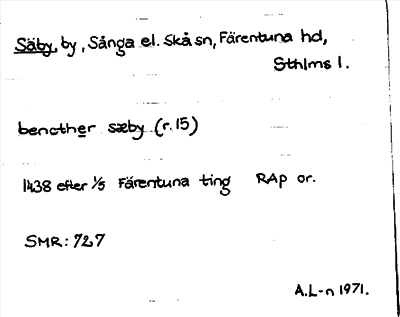 Säby, by, Sånga el. Skå sn, Färentuna hd,
Sthlms l.
benother sæby (r. 15)
1438 efter 1/5 Färentuna ting RAp or.
SMR: 727
A.L-n 1971.